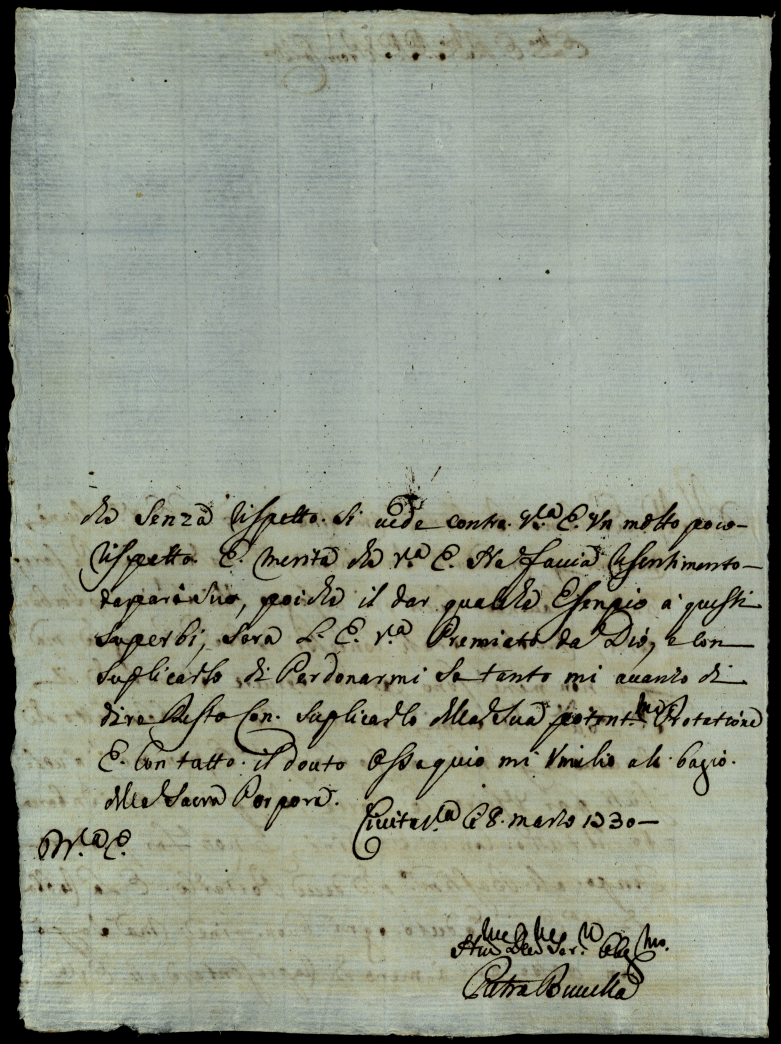 che senza rispetto. Si uede contra. V.ra E. Vn molto poco
rispetto. E. merita che V.ra E. Ne faccia risentimento
da spari Suo, poiche il dar qualche Esenpio à questi
Superbi, Sera L. E. V.ra Premiato da Dio, e con
Suplicarlo di Perdonarmi Se tanto mi auanzo di
dire. Resto Con. Suplicarlo della Sua potent.ma Protatione
E. Con tutto. il douto Ossequio mi Vmilio al. bagio.
della Sacra Porpora.
Ciuita V.a li 8. marzo 1730
D V.ra E.
Hu.me De.me Ser.re Oblig.mo
Pietro